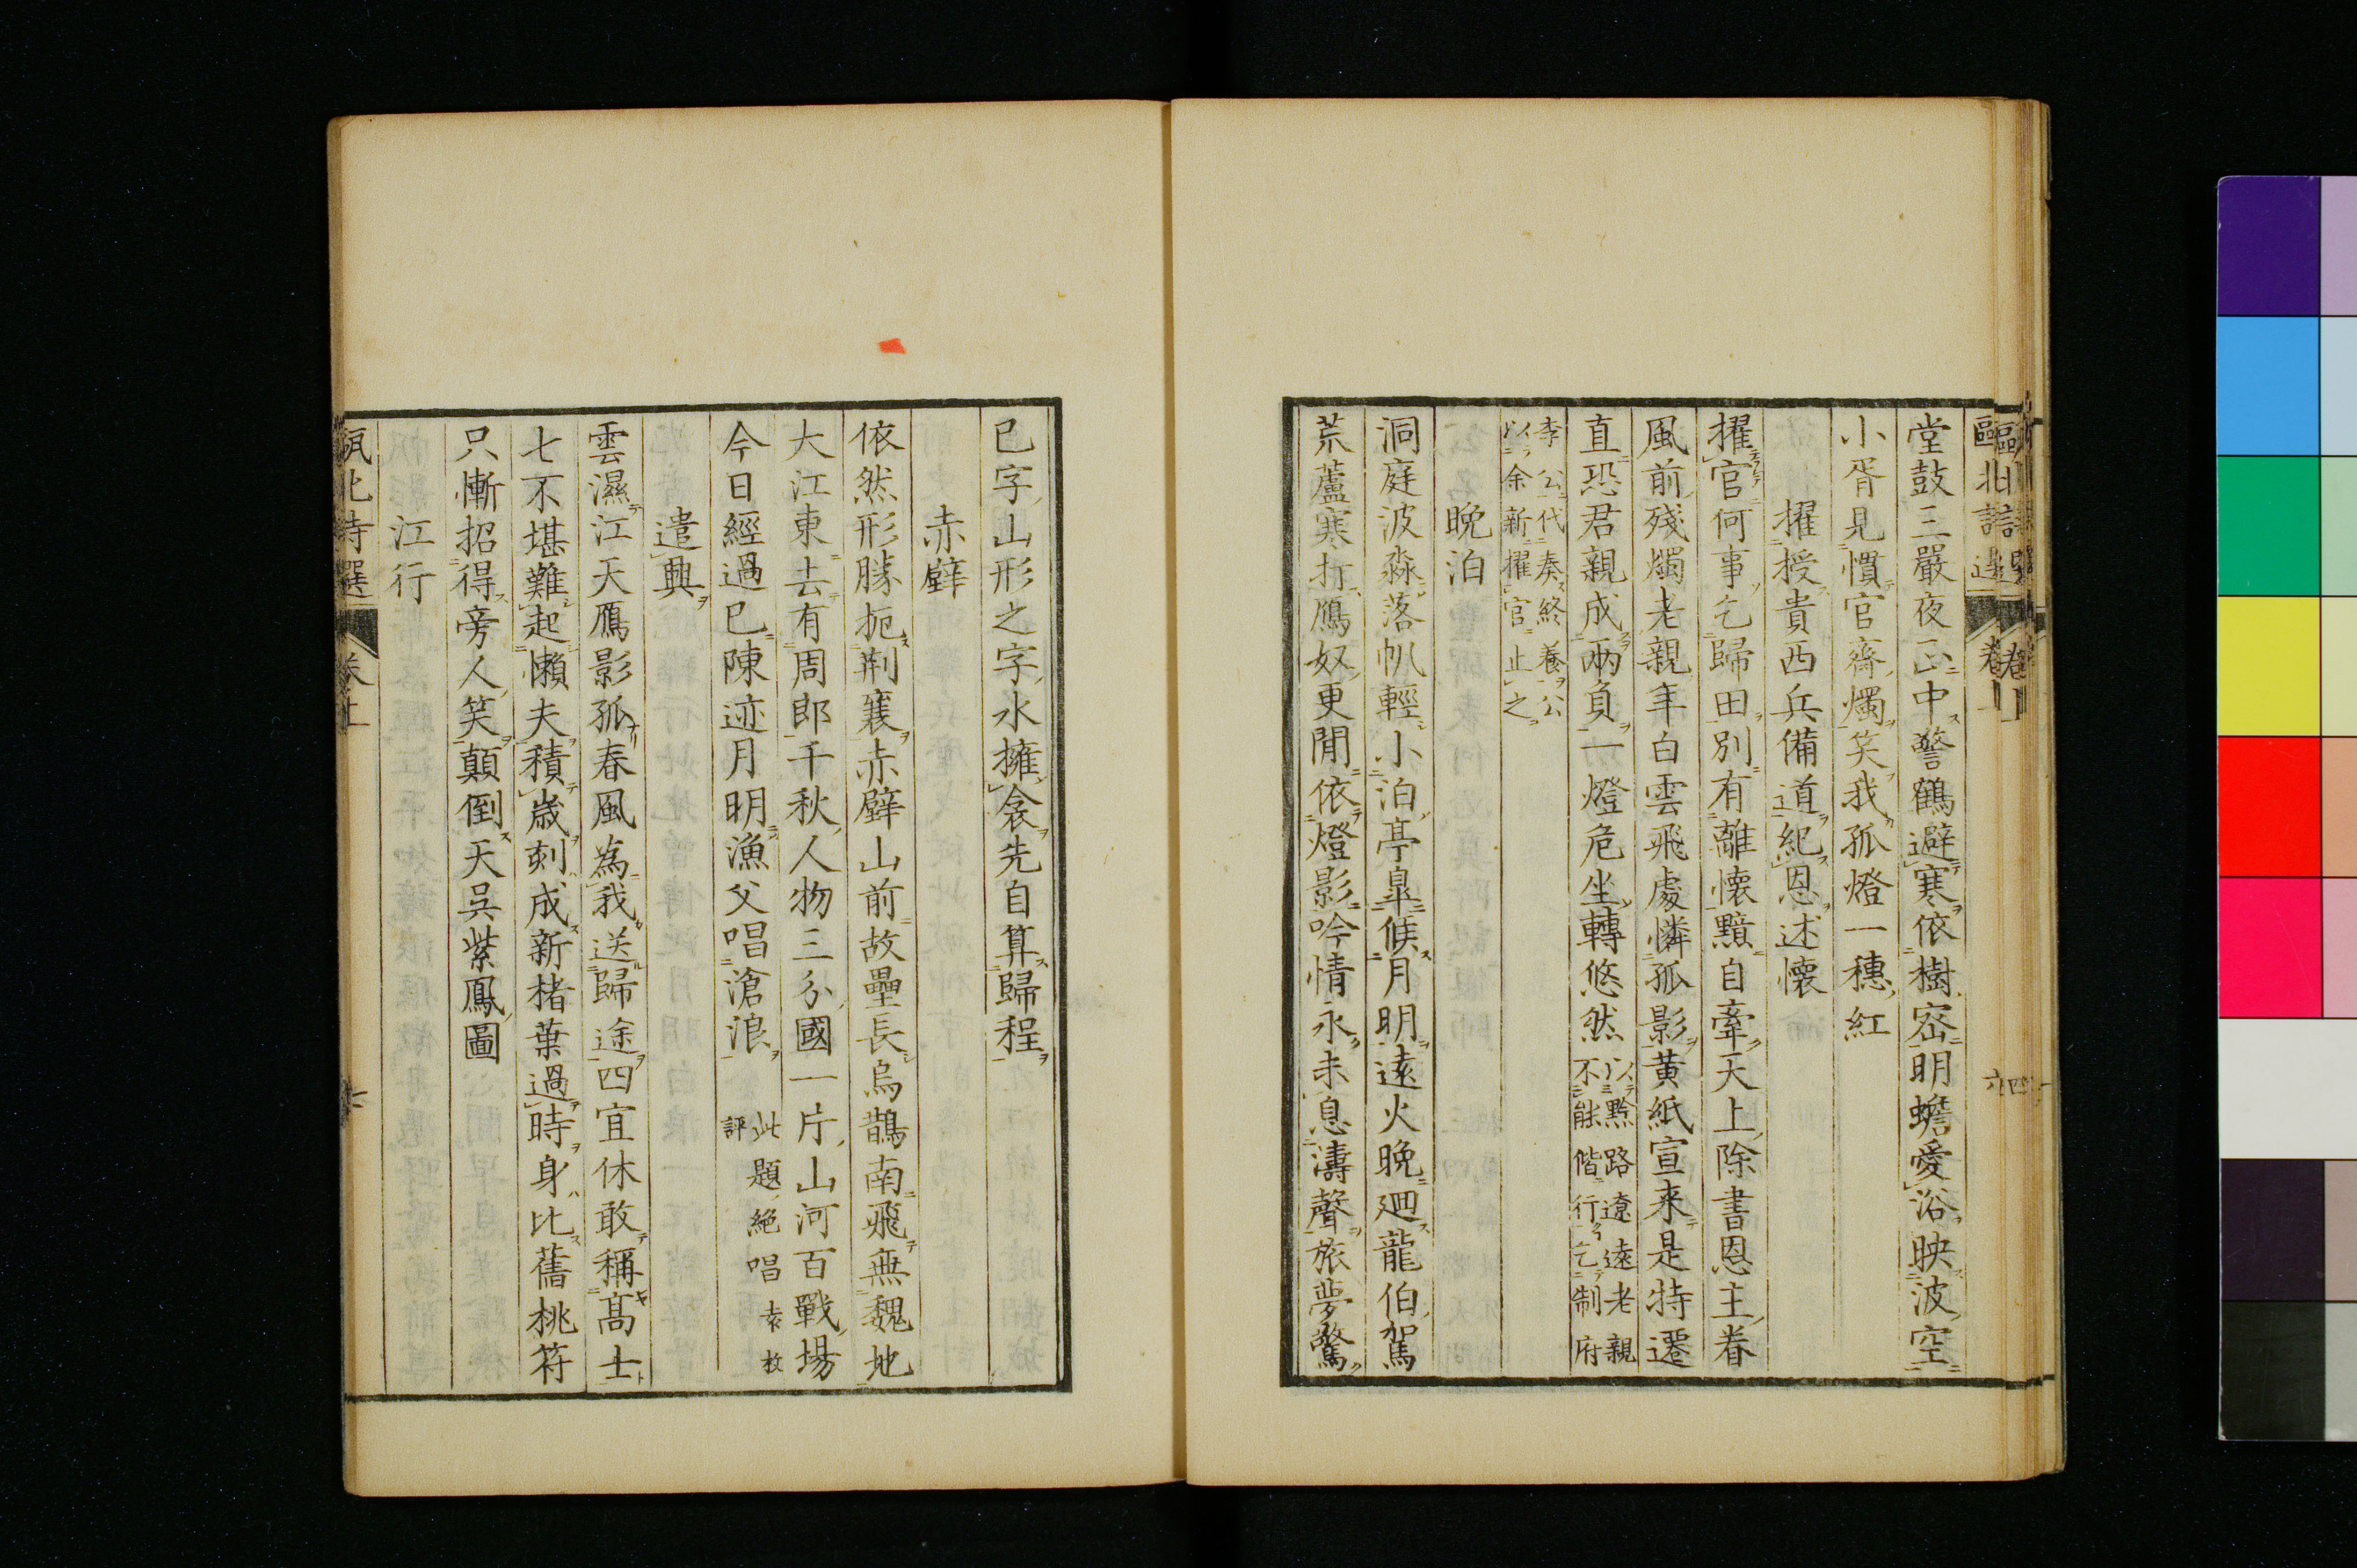 堂鼓三嚴夜正中警鶴避寒依樹宻明蟾愛浴映波空
小胥見慣官齋燭笑我孤燈一穗紅
擢授貴西兵備道紀恩述懷
擢官何事乞歸田別有離懷黯自牽天上除書恩主眷
風前殘燭老親年白雲飛處憐孤影黃紙宣来是特遷
直恐君親成兩負一燈危坐轉悠然
以黔路遼遠老親
不能偕行乞制府
李公代奏終養公
以余新擢官止之
晩泊
洞庭波淼落帆輕小泊亭皐候月明遠火晚廻龍伯駕
荒蘆寒打鴈奴更閒依燈影吟情永未息濤聲旅夢驚
巳字山形之字水擁衾先自算歸程
赤壁
依然形勝扼荆襄赤壁山前故壘長烏鵲南飛無魏地
大江東去有周郎千秋人物三分國一片山河百戰場
今日經過巳陳迹月明漁父唱滄浪
此題絶唱袁枚
評
遣興
雲濕江天鴈影孤春風為我送歸途四宜休敢稱髙士
七不堪難起懶夫積歳刻成新楮葉過時身比舊桃符
只慚招得旁人笑顛倒天吳紫鳳圖
江行
甌北詩選 卷上